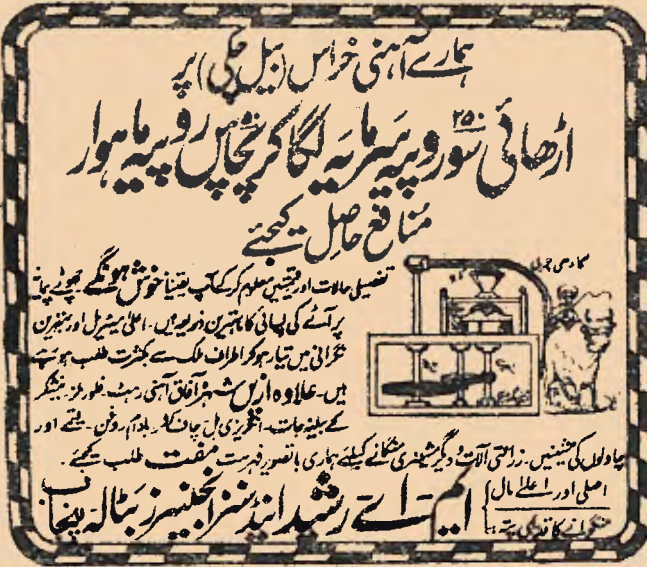 ہمارے آہنی خراس (بیل چکی) پر
۲۵۰
اڑھائی سو روپیہ سرمایہ لگا کر پچاس روپیہ ماہوار
منافع حاصل کیجئے
تفصیلی حالات اور قیمتیں معلوم کر کے آپ یقیناً خوش ہونگے چھوٹے پیمانے
پر آٹے کی پسائی کا بہترین ذریعہ ہیں۔ اعلیٰ میٹریل اور بہترین
نگرانی میں تیار ہو کر اطراف ملک سے بکثرت طلب ہو رہے
ہیں۔ علاوہ ازیں شہرۂ آفاق آہنی رہٹ۔ فلور ملز۔ نیشکر
کے بیلنہ جات۔ انگریزی ہل چاف کٹر۔ بادام روغن۔ سیویاں اور
چاولوں کی مشینیں۔ زراعتی آلات و دیگر مشینری منگانے کیلئے ہماری باتصویر فہرست مفت طلب کیجئے۔
اصلی اور اعلےٰ مال
منگوانے کا قدیمی پتہ:
ایم۔ اے رشید اینڈ سنز انجنیئرز بٹالہ پنجاب